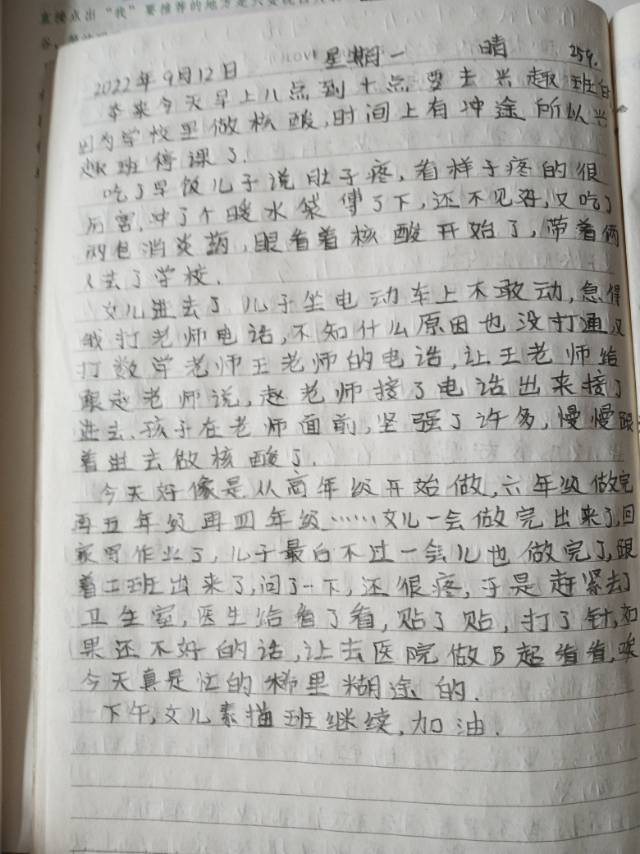 直接点出“我”要推荐的地方是
2022年9月12日 星期一 晴 259.
本来今天早上八点到十点要去兴趣班自
因为学校里做核酸,时间上有冲途所以兴
趣班停课了.
吃了早饭儿子说肚子疼,看样子疼的很
厉害,冲了个暖水袋傅了下,还不见好,又吃了
两包消炎药,眼看着核酸开始了,带着俩
人去了学校.
女儿进去了,儿子坐电动车上不敢动,急得
我打老师电话,不知什么原因也没打通,又
打数学老师王老师的电话,让王老师给
跟赵老师说,赵老师接了电话出来接了
进去.孩子在老师面前,坚强了许多,慢慢跟
着进去做核酸了.
今天好像是从高年级开始做,六年级做完
再五年级再四年级……女儿一会做完出来了,回
家写作业了,儿子最后不过一会儿也做完了,跟
着二班出来了,问了一下,还很疼,于是赶紧去了
卫生室,医生给看了看,贴了贴,打了针,如
果还不好的话,让去医院做B超看看,唉
今天真是忙的稀里糊途的.
下午,女儿素描班继续,加油.